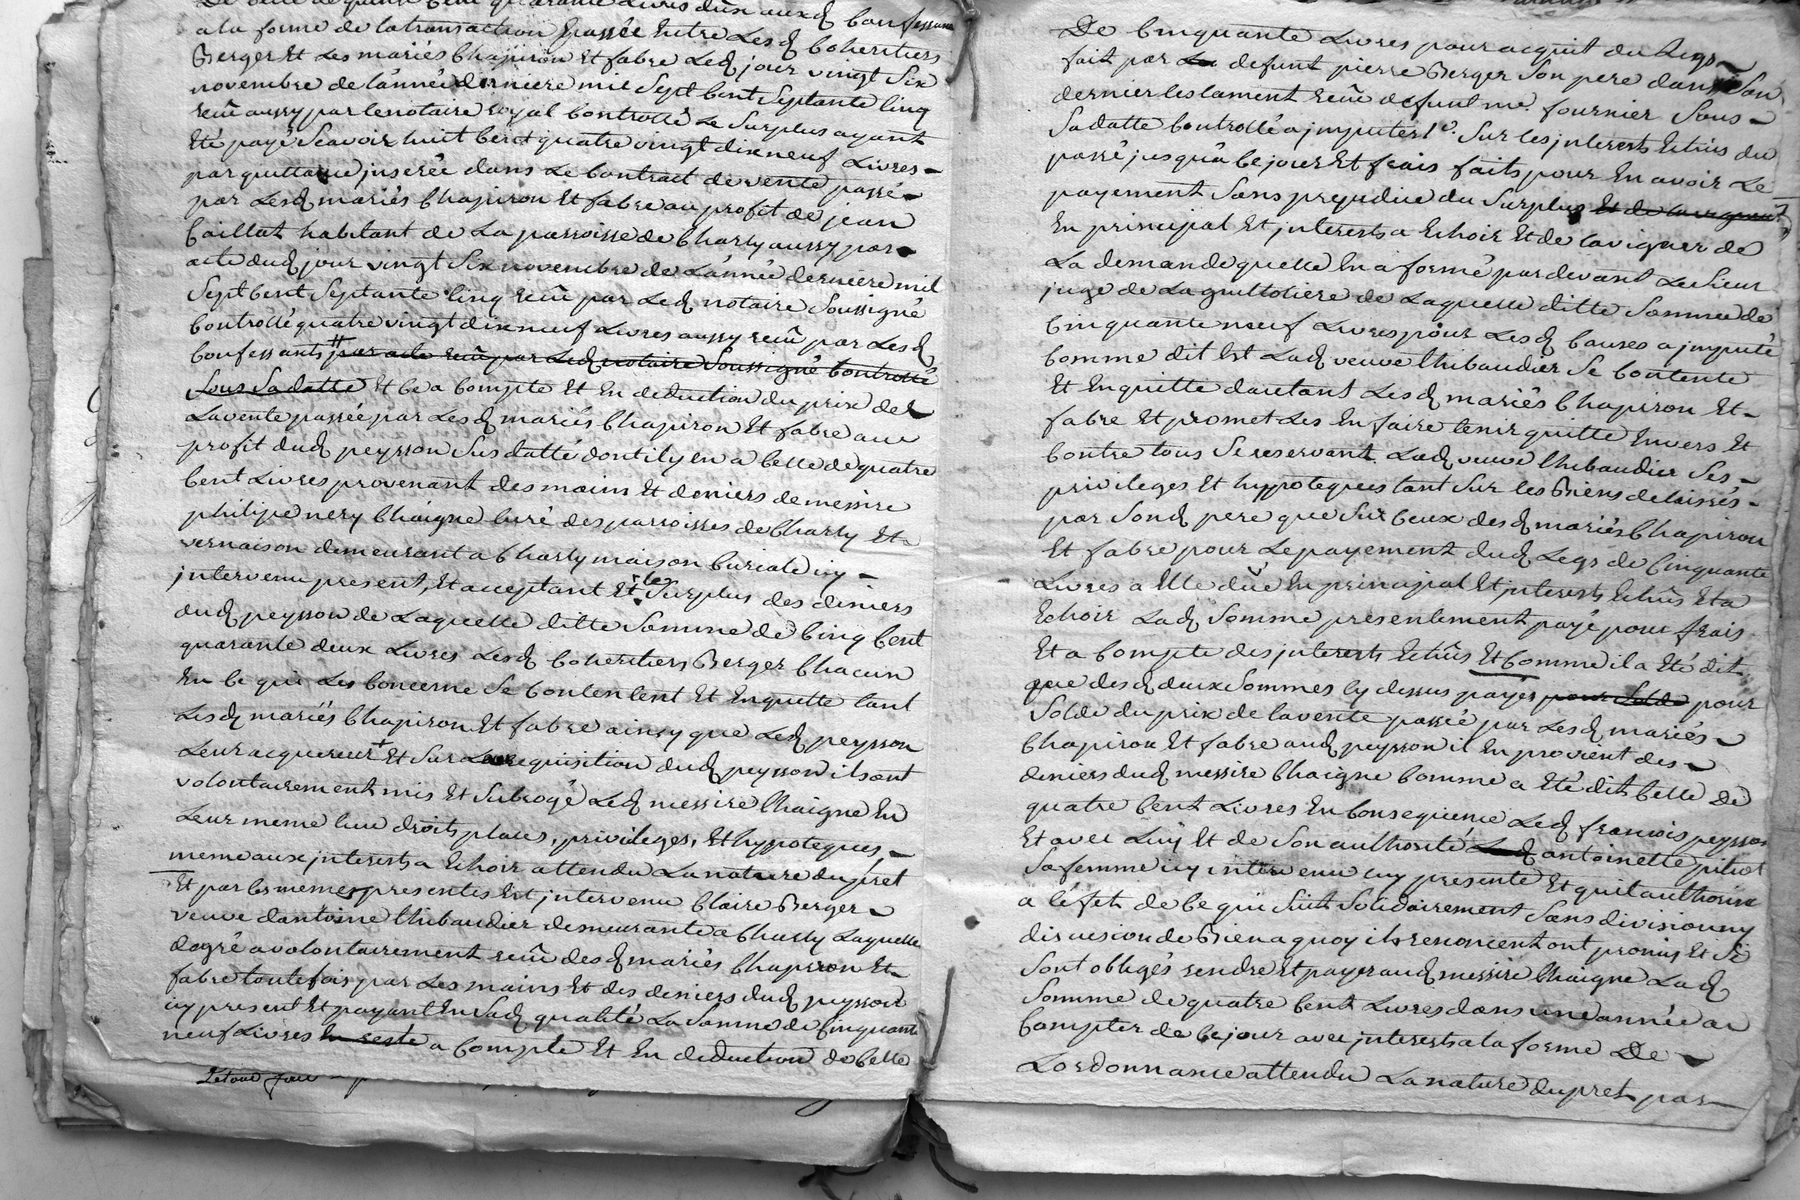 a la forme de la transaction passée Entre Lesd coheritiers
Berger Et Les mariés Chapiron Et fabre Led jour vingt Six
novembre de l'année derniere mil Sept Cent Septante Cinq
reçû aussy par le notaire royal Controllé Le Surplus ayant
Eté payé Scavoir huit Cent quatre vingt dix neuf Livres
par quittance jnserée dans Le Contract de vente passé
par Lesd mariés Chapiron Et fabre au profit de jean
Caillat habitant de La parroisse de Charly aussy par
acte dud jour vingt Six novembre de L'année derniere mil
Sept Cent Septante Cinq reçû par Led notaire Soussigné
Controllé quatre vingt dix neuf Livres aussy reçû par Lesd
Confessants # par acte reçû par Led notaire Soussigné Controllé
Sous Sa datte Et Ce a Compte Et En deduction du prix de
La vente passée par Lesd mariés Chapiron Et fabre au
profit dud peysson Sus datté dont il y en a Celle de quatre
Cent Livres provenant des mains Et deniers de messire
philipe nery Chaigne Curé des parroisses de Charly Et
vernaison demeurant a Charly maison Curiale icy
jntervenu present, Et acceptant Et le Surplus des deniers
dud peysson de Laquelle ditte Somme de Cinq Cent
quarante deux Livres Lesd Coheritiers Berger Chacun
En Ce qui Les Concerne Se Contentent Et En quitte tant
Lesd mariés Chapiron Et fabre ainsy que Led peysson
Leur acquereur + Et Sur La requisition dud peysson ils ont
volontairement mis Et Subrogé Led messire Chaigne En
Leur meme lieu droits places, privileges, Et hypoteques
meme aux jnterests a Echoir attendu La nature du pret
Et par les memes presentes Est jntervenu Claire Berger
veuve d'antoine Thibaudier demeurante a Charly Laquelle
de gré a volontairement reçû desd mariés Chapiron Et
fabre toutefois par Les mains Et des deniers dud peysson
icy present Et payant En Sad qualité La Somme de Cinquante
neuf Livres En reste a Compte Et En deduction de Celle
De Cinquante Livres pour acquit du Legs
fait par Le defunt pierre Berger Son pere dans Son
dernier testament reçû defunt me. fournier Sous
Sa datte Controllé a jmputer Sur les jnterests Echûs du
passé jusqu'a Ce jour Et frais faits pour En avoir Le
payement Sans prejudice du Surplus Et de la vigueur
En principal Et jnterests a Echoir Et de la vigueur de
La demande quelle En a formé par devant Le Sieur
juge de La guillotiere de Laquelle ditte Somme de
Cinquante neuf Livres pour Lesd Causes a jmputé
Comme dit Est Lad veuve Thibaudier Se Contente
Et En quitte d'autant Lesd mariés Chapiron Et
fabre Et promet Les En faire tenir quitte Envers Et
Contre tous Se reservant Lad veuve Thibaudier Ses
privileges Et hypoteques tant Sur les Biens delaissés
par Sond pere que Sur Ceux desd mariés Chapiron
Et fabre pour Le payement dud Legs de Cinquante
Livres a Elle dûe En principal Et jnterests Echûs Et a
Echoir Lad Somme presentement payé pour frais
Et a Compte des jnterests Echûs Et Comme il a Eté dit
que desd deux Sommes Cy dessus payés pour Solde pour
Solde du prix de la vente passée par Lesd mariés
Chapiron Et fabre aud peysson il En provient des
deniers dud messire Chaigne Comme a Eté dit Celle De
quatre Cent Livres En Consequence Led francois peysson
Et avec Luy Et de Son authorité antoinette
Sa femme icy intervenue icy presente Et qu'il authorise
a l'éfet de Ce qui Suit Solidairement Sans division ny
discusion de Bien a quoy ils renoncent ont promis Et Se
Sont obligés rendre Et payer aud messire Chaigne Lad
Somme de quatre Cent Livres dans une année a
Compter de Ce jour avec jnterests a la forme De
L'ordonnance attendu La nature du pret par